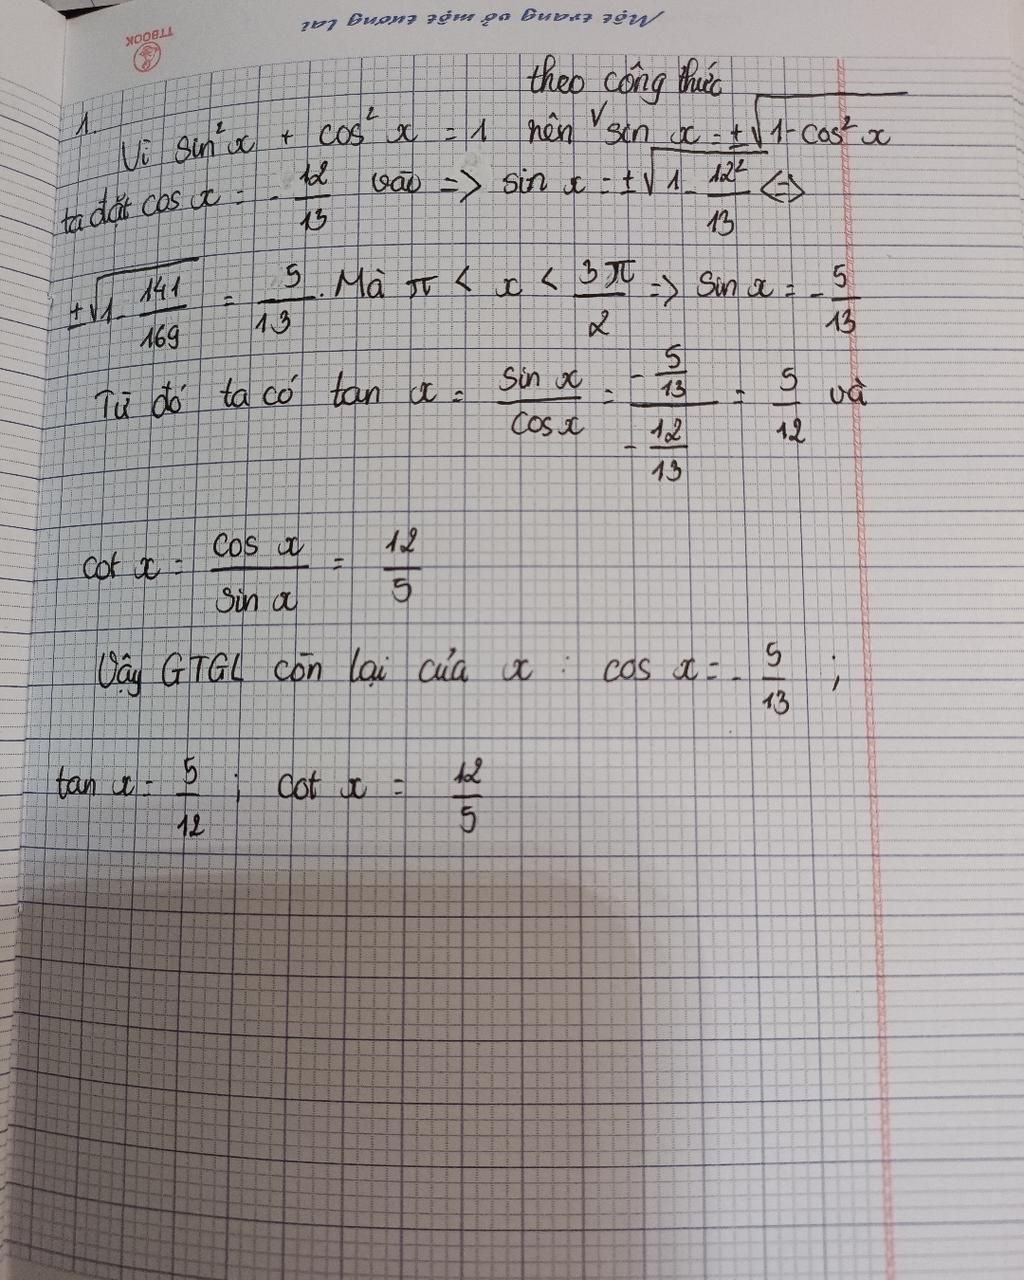 Một trang vở một tương lai
TTBOOK
theo công thức
1. Vì sin²x + cos²x = 1 nên √ sin x = ±√(1-cos²x)
ta đặt cos x = -12/13 vào => sin x = ±√(1 - 12²/13) <=>
±√(1 - 141/169) = 5/13. Mà π < x < 3π/2 => sin x = -5/13
Từ đó ta có tan x = sin x/cos x = (-5/13)/(-12/13) = 5/12 và
cot x = cos x/sin x = 12/5
Vậy GTGL còn lại của x : cos x = -5/13 ;
tan x = 5/12 ; cot x = 12/5